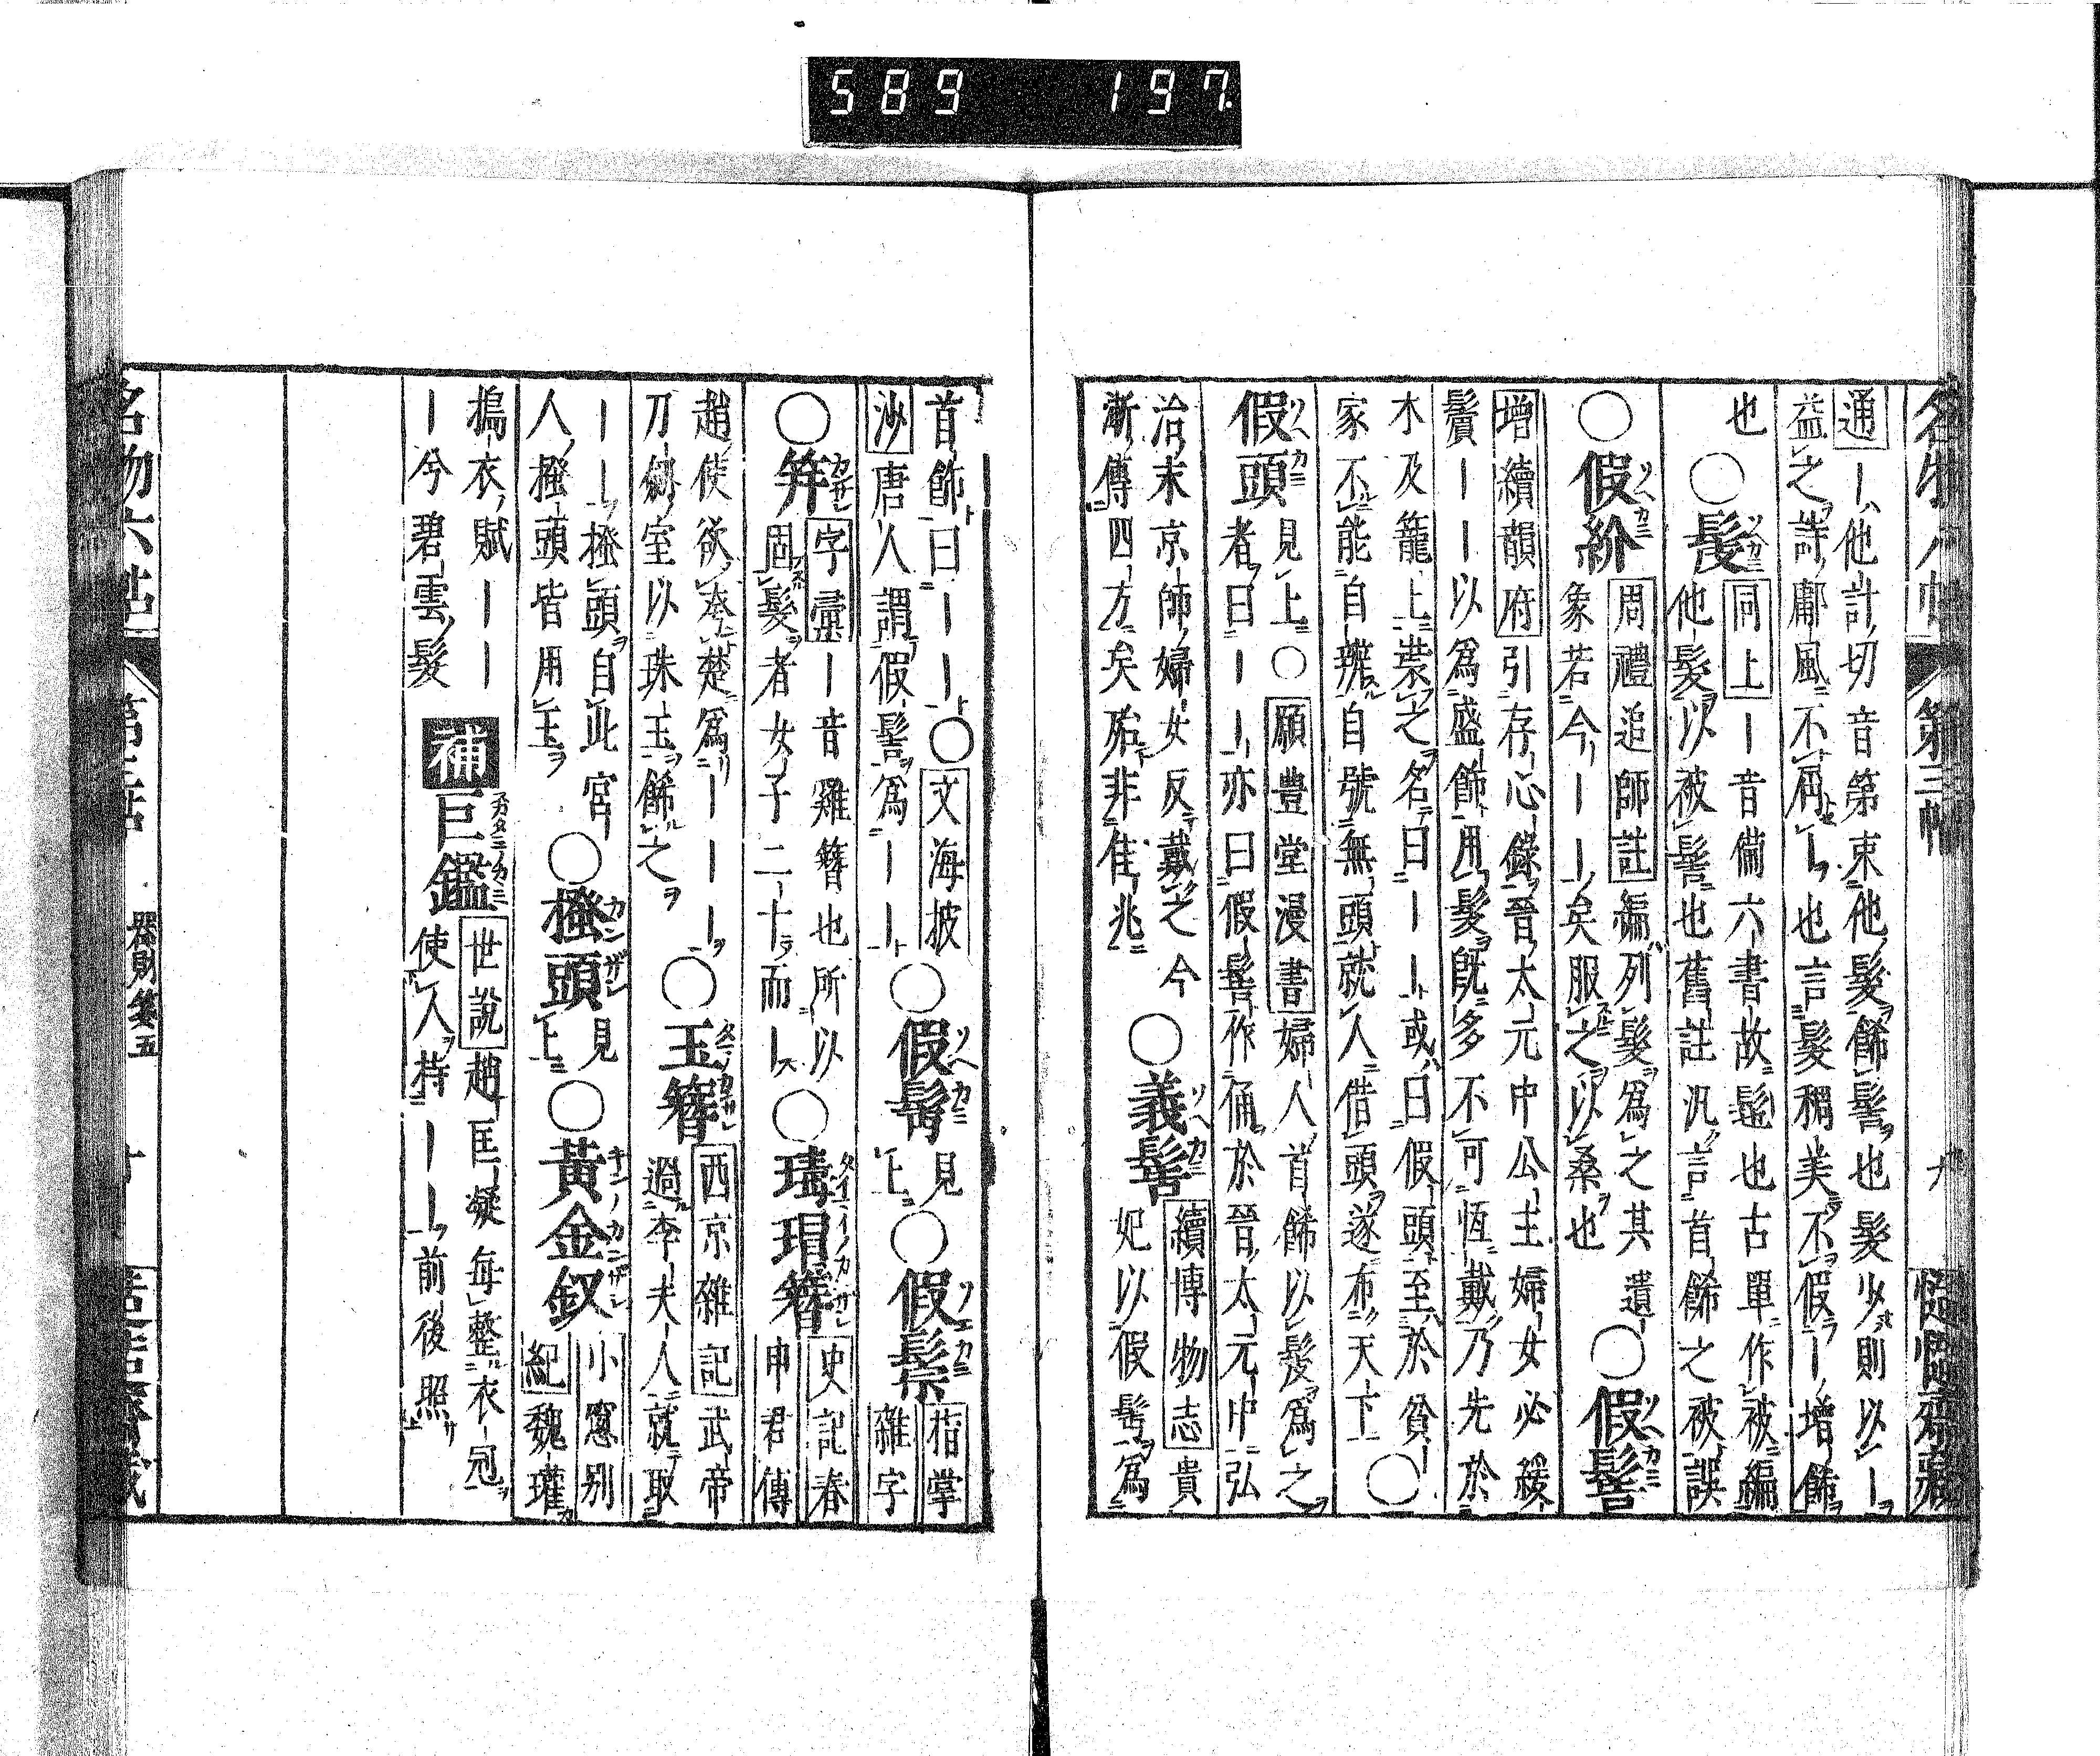 589 197.
名物六帖 第三帖 九 奚疑齋藏
通｜他計切音第束他髮飾髻也髮少則以｜
益之詩鄘風不屑｜也言髮稱美不假｜增飾
也○髲同上｜音備六書故髢也古單作被編
他髮以被髻也舊註汎言首飾之被誤
○假紒周禮追師註編列髮爲之其遺
象若今｜｜矣服之以桑也○假髻
增續韻府引存心錄晉太元中公主婦女必緩
鬢｜｜以爲盛飾用髮既多不可恆戴乃先於
木及籠上裝之名曰｜｜或曰假頭至於貧
家不能自辦自號無頭就人借頭遂布天下○
假頭見上○願豐堂漫書婦人首飾以髮爲之
者曰｜｜亦曰假髻作俑於晉太元中弘
治末京師婦女反戴之今
漸傳四方矣殆非佳兆○義髻續博物志貴
妃以假髻爲
首飾曰｜｜○文海披
沙唐人謂假髻爲｜｜○假髾見上○假髤指掌
雜字
○筓字彙｜音雞簪也所以
固髮者女子二十而｜○瑇瑁簪史記春
申君傳
趙使欲夸楚爲｜｜｜
刀劍室以珠玉飾之○玉簪西京雜記武帝
過李夫人就取
｜｜搔頭自此宮
人搔頭皆用玉○搔頭見上○黃金釵小窻别
紀魏瓘
搗衣賦｜｜
｜兮碧雲髮 補巨鑑世說趙匡凝每整衣冠
使人持｜｜前後照
名物六帖 第三帖 器財箋五